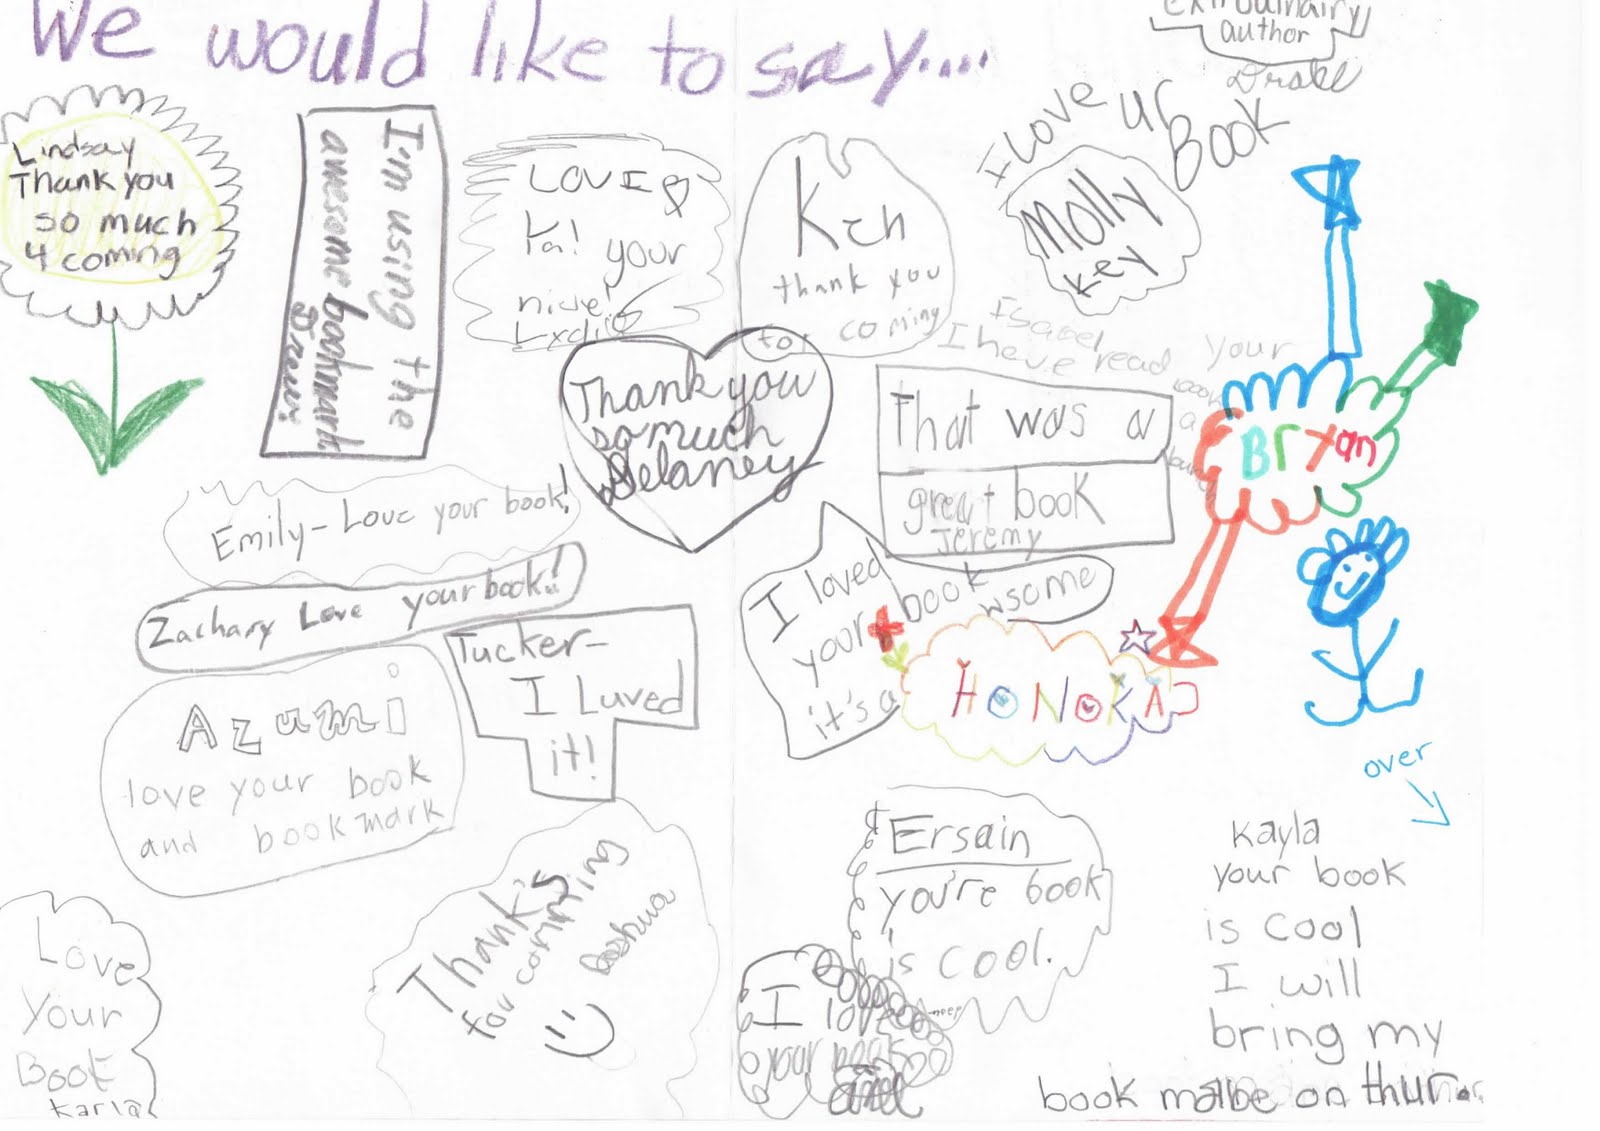 We would like to say....
author
Drake
Lindsay
Thank you
so much
4 coming
I'm using the
awesome bookmark
Drew
LOVE
Ya! your
nice!
Ken
thank you
for coming
I Love ur
Book
Molly
Key
Isabel
I have read your
book
a
Thank you
so much
Delaney
That was a
great book
Jeremy
Bryan
Emily - Love your book!
Zachary Love your book!!
Tucker-
I Luved
it!
I loved
your book
it's a
wsome
HONOKA
Azumi
love your book
and bookmark
over
Thank's
for coming
Joshua
Ersain
you're book
is cool.
Kayla
your book
is cool
I will
bring my
book maibe on thur.
Love
Your
Book
Karla
I love
your book